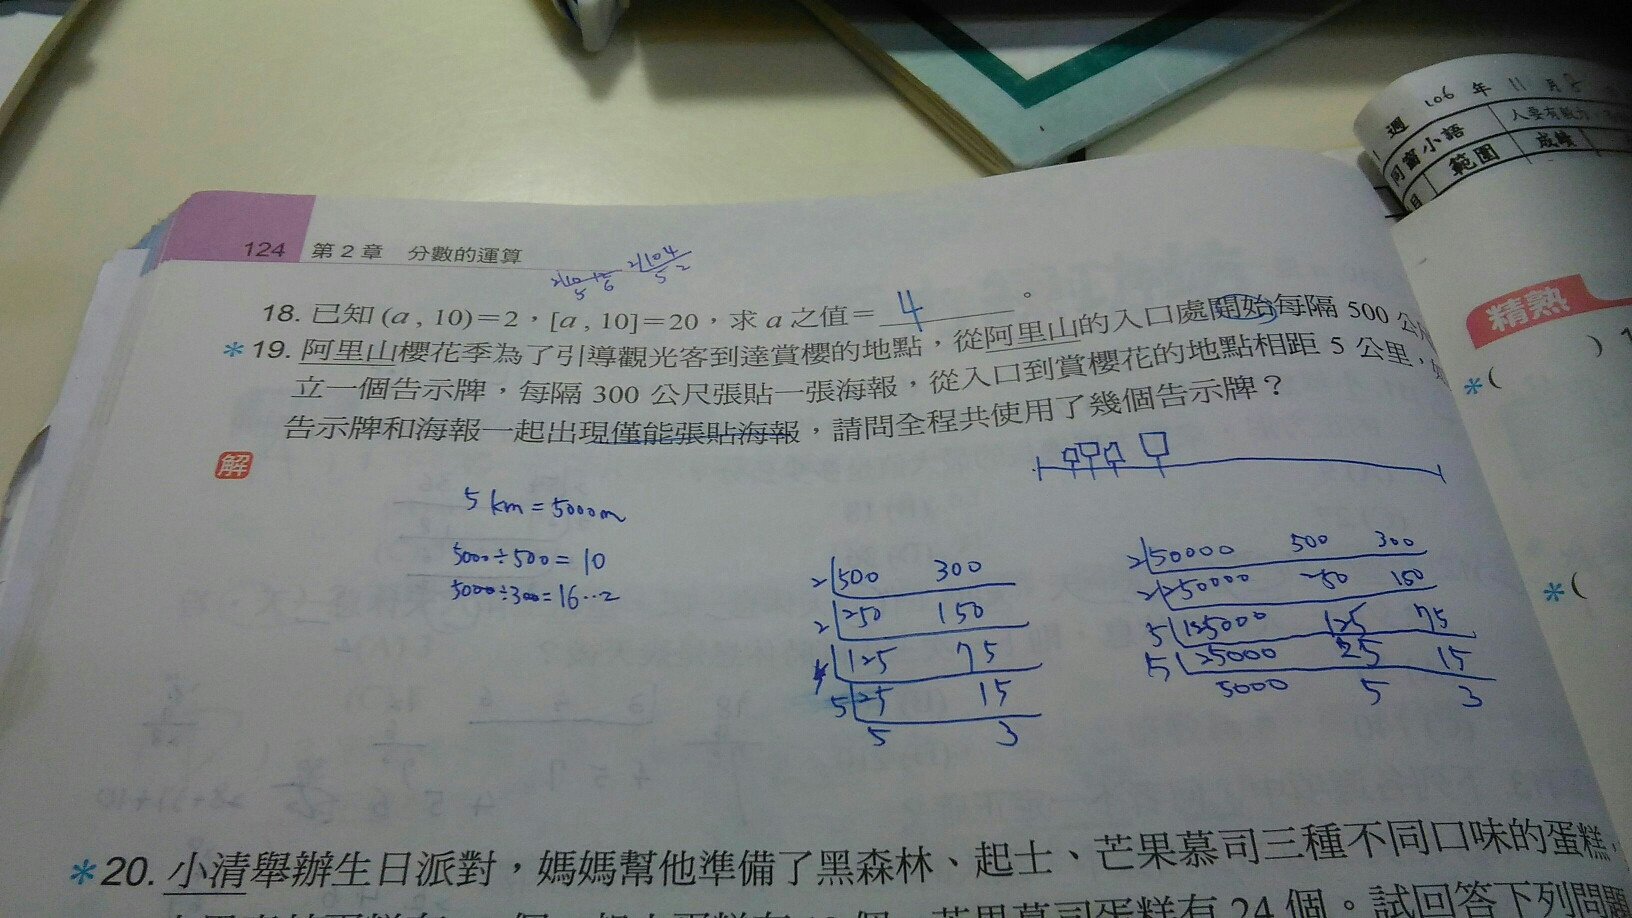 106 年 11 月
週
同窗小語
人要有
範圍
成績
124 第 2 章 分數的運算
2 10
5 6
2 104
5 2
18. 已知 (a , 10)＝2，[a , 10]＝20，求 a 之值＝ 4 。
＊19. 阿里山櫻花季為了引導觀光客到達賞櫻的地點，從阿里山的入口處開始每隔 500 公
立一個告示牌，每隔 300 公尺張貼一張海報，從入口到賞櫻花的地點相距 5 公里，
告示牌和海報一起出現僅能張貼海報，請問全程共使用了幾個告示牌？
解
5 km = 5000m
5000÷500 = 10
5000÷300 = 16…2
2 500 300
2 250 150
125 75
5 25 15
5 3
2 50000 500 300
2 250000 250 150
5 125000 125 75
5 25000 25 15
5000 5 3
＊20. 小清舉辦生日派對，媽媽幫他準備了黑森林、起士、芒果慕司三種不同口味的蛋糕，
芒果慕司蛋糕有 24 個。試回答下列問題
精熟
＊(
＊(